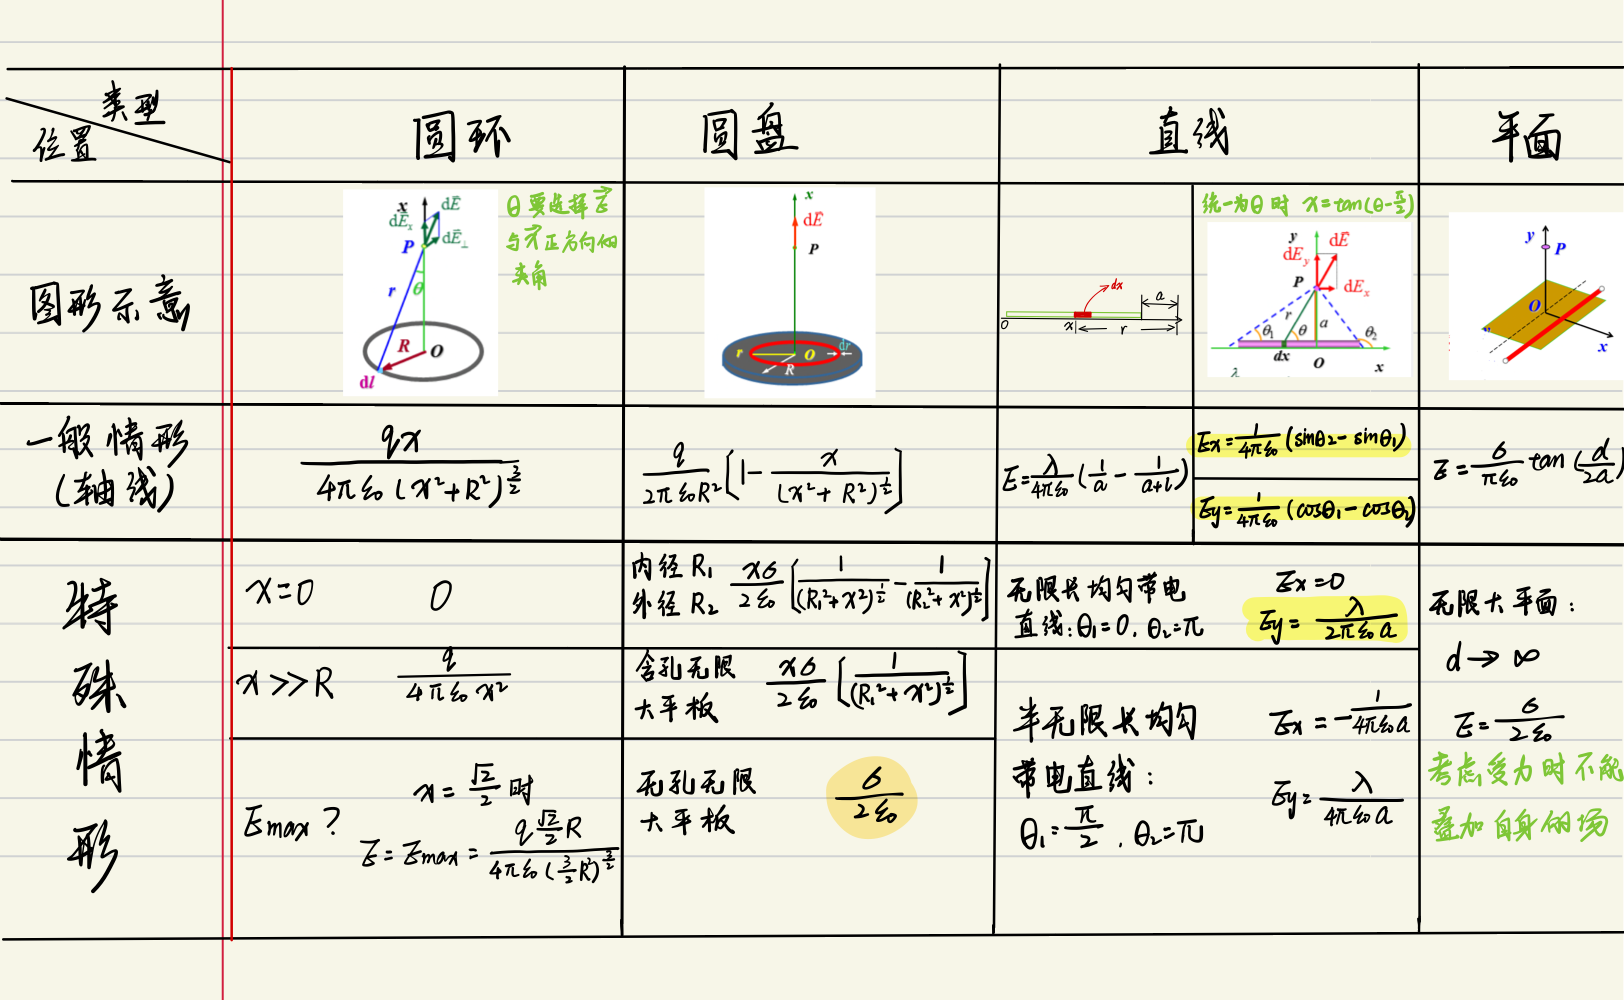 类型
位置
圆环
圆盘
直线
平面
图形示意
x
dE
dEx
dE⊥
P
r
θ
R
O
dl
θ要选择E
与x正方向的
夹角
x
dE
P
r
O
dr
R
dx
a
O
x
r
统一为θ时 x=tan(θ-π/2)
y
dE
dEy
P
dEx
r
a
θ1
θ
θ2
dx
O
x
λ
y
P
O
x
一般情形
(轴线)
qx/4πε0(x²+R²)^(3/2)
q/2πε0R²[1-x/(x²+R²)^(1/2)]
E=λ/4πε0(1/a-1/a+l)
Ex=1/4πε0(sinθ2-sinθ1)
Ey=1/4πε0(cosθ1-cosθ2)
E=6/πε0 tan(d/2a)
特殊情形
x=0 0
内径R1
外径R2
x6/2ε0[1/(R1²+x²)^(1/2)-1/(R2²+x²)^(1/2)]
无限长均匀带电
直线:θ1=0,θ2=π
Ex=0
Ey=λ/2πε0a
无限大平面:
d→∞
E=6/2ε0
考虑受力时不能
叠加自身的场
x>>R q/4πε0x²
含孔无限
大平板
x6/2ε0[1/(R1²+x²)^(1/2)]
半无限长均匀
带电直线:
θ1=π/2,θ2=π
Ex=-1/4πε0a
Ey=λ/4πε0a
Emax?
x=√2/2时
E=Emax=q√2/2R/4πε0(3/2R²)^(3/2)
无孔无限
大平板
6/2ε0